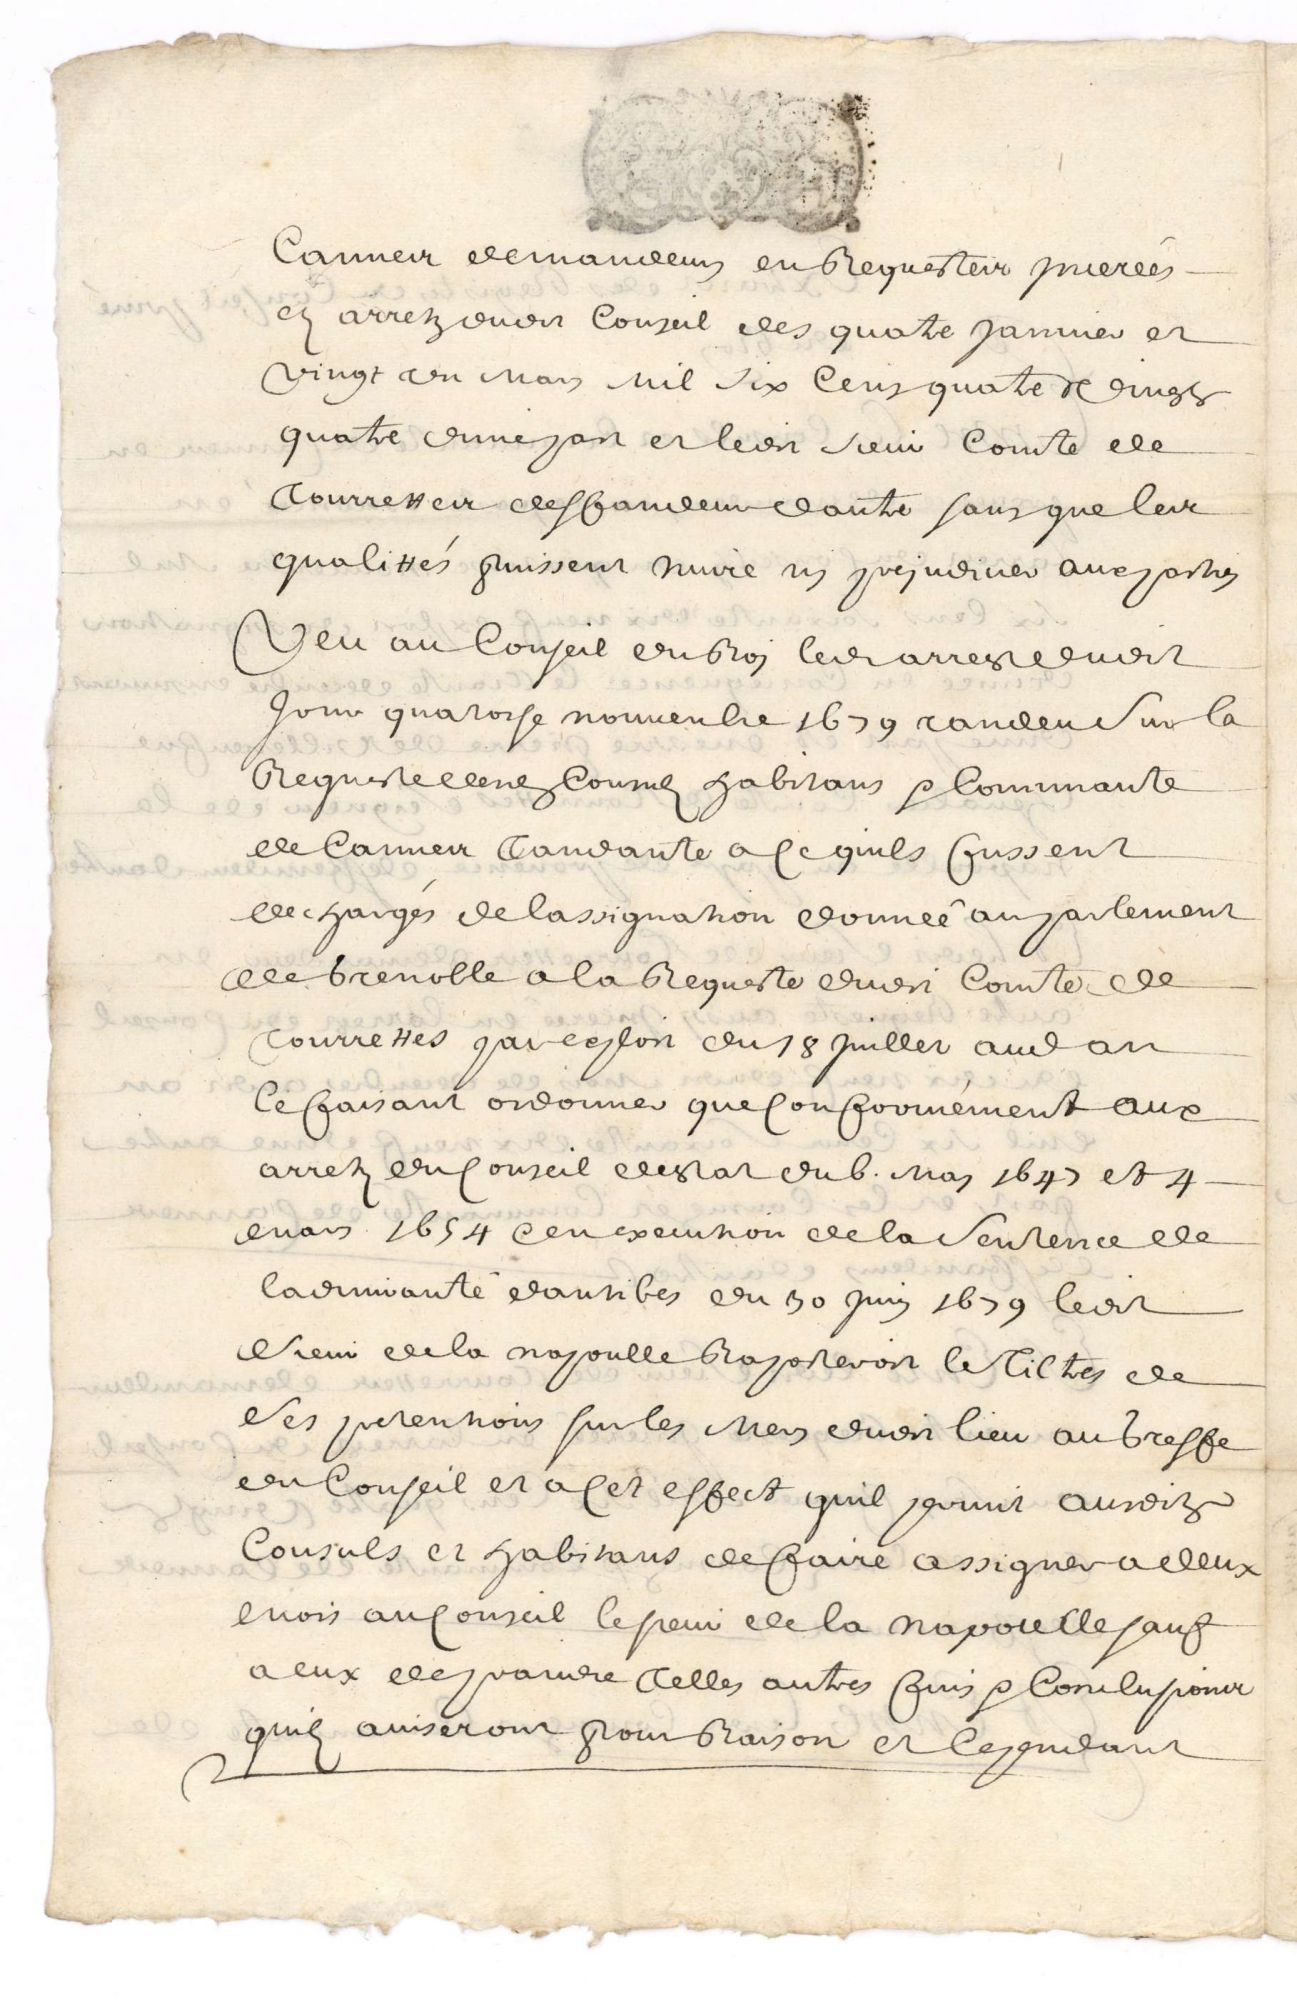 Cannes demandeurs en Requestes inserées
es arretz dudit Conseil des quatre Janvier et
vingt un Mars Mil Six Cens quatre vingtz
quatre d'une part et ledit Sieur Comte de
Tourrettes deffandeur dautre sans que les
qualittés puissent nuire ni prejudicier aux parties
Veu au Conseil du Roy ledit arrest dudit
Jour quatorse nouvembre 1679 randeu Sur la
Requeste desd Consulz habitans & Commnauté
de Cannes Tandante a ce quils fussent
dechargés de lassignation donneé au parlement
de Grenoble a la Requeste dudit Comte de
Tourrettes par exploit du 18 Juillet aud an
Ce faisant ordonner que Conformément aux
arretz du Conseil destat du 6. May 1647 et 4
mars 1654 & en execution de la Sentence de
ladmirauté dantibes du 30 Juin 1679 ledit
Sieur de la napoulle Raporteroit le Tiltres de
Ses pretentions sur les Mers dudit lieu au Greffe
du Conseil et a Cet effect quil permit ausditz
Consuls et habitans de faire assigner a deux
mois au Conseil le sieur de la napoulle sauf
a eux de prandre Telles autres fins & Conclusions
quilz aviseront pour Raison et Cependant